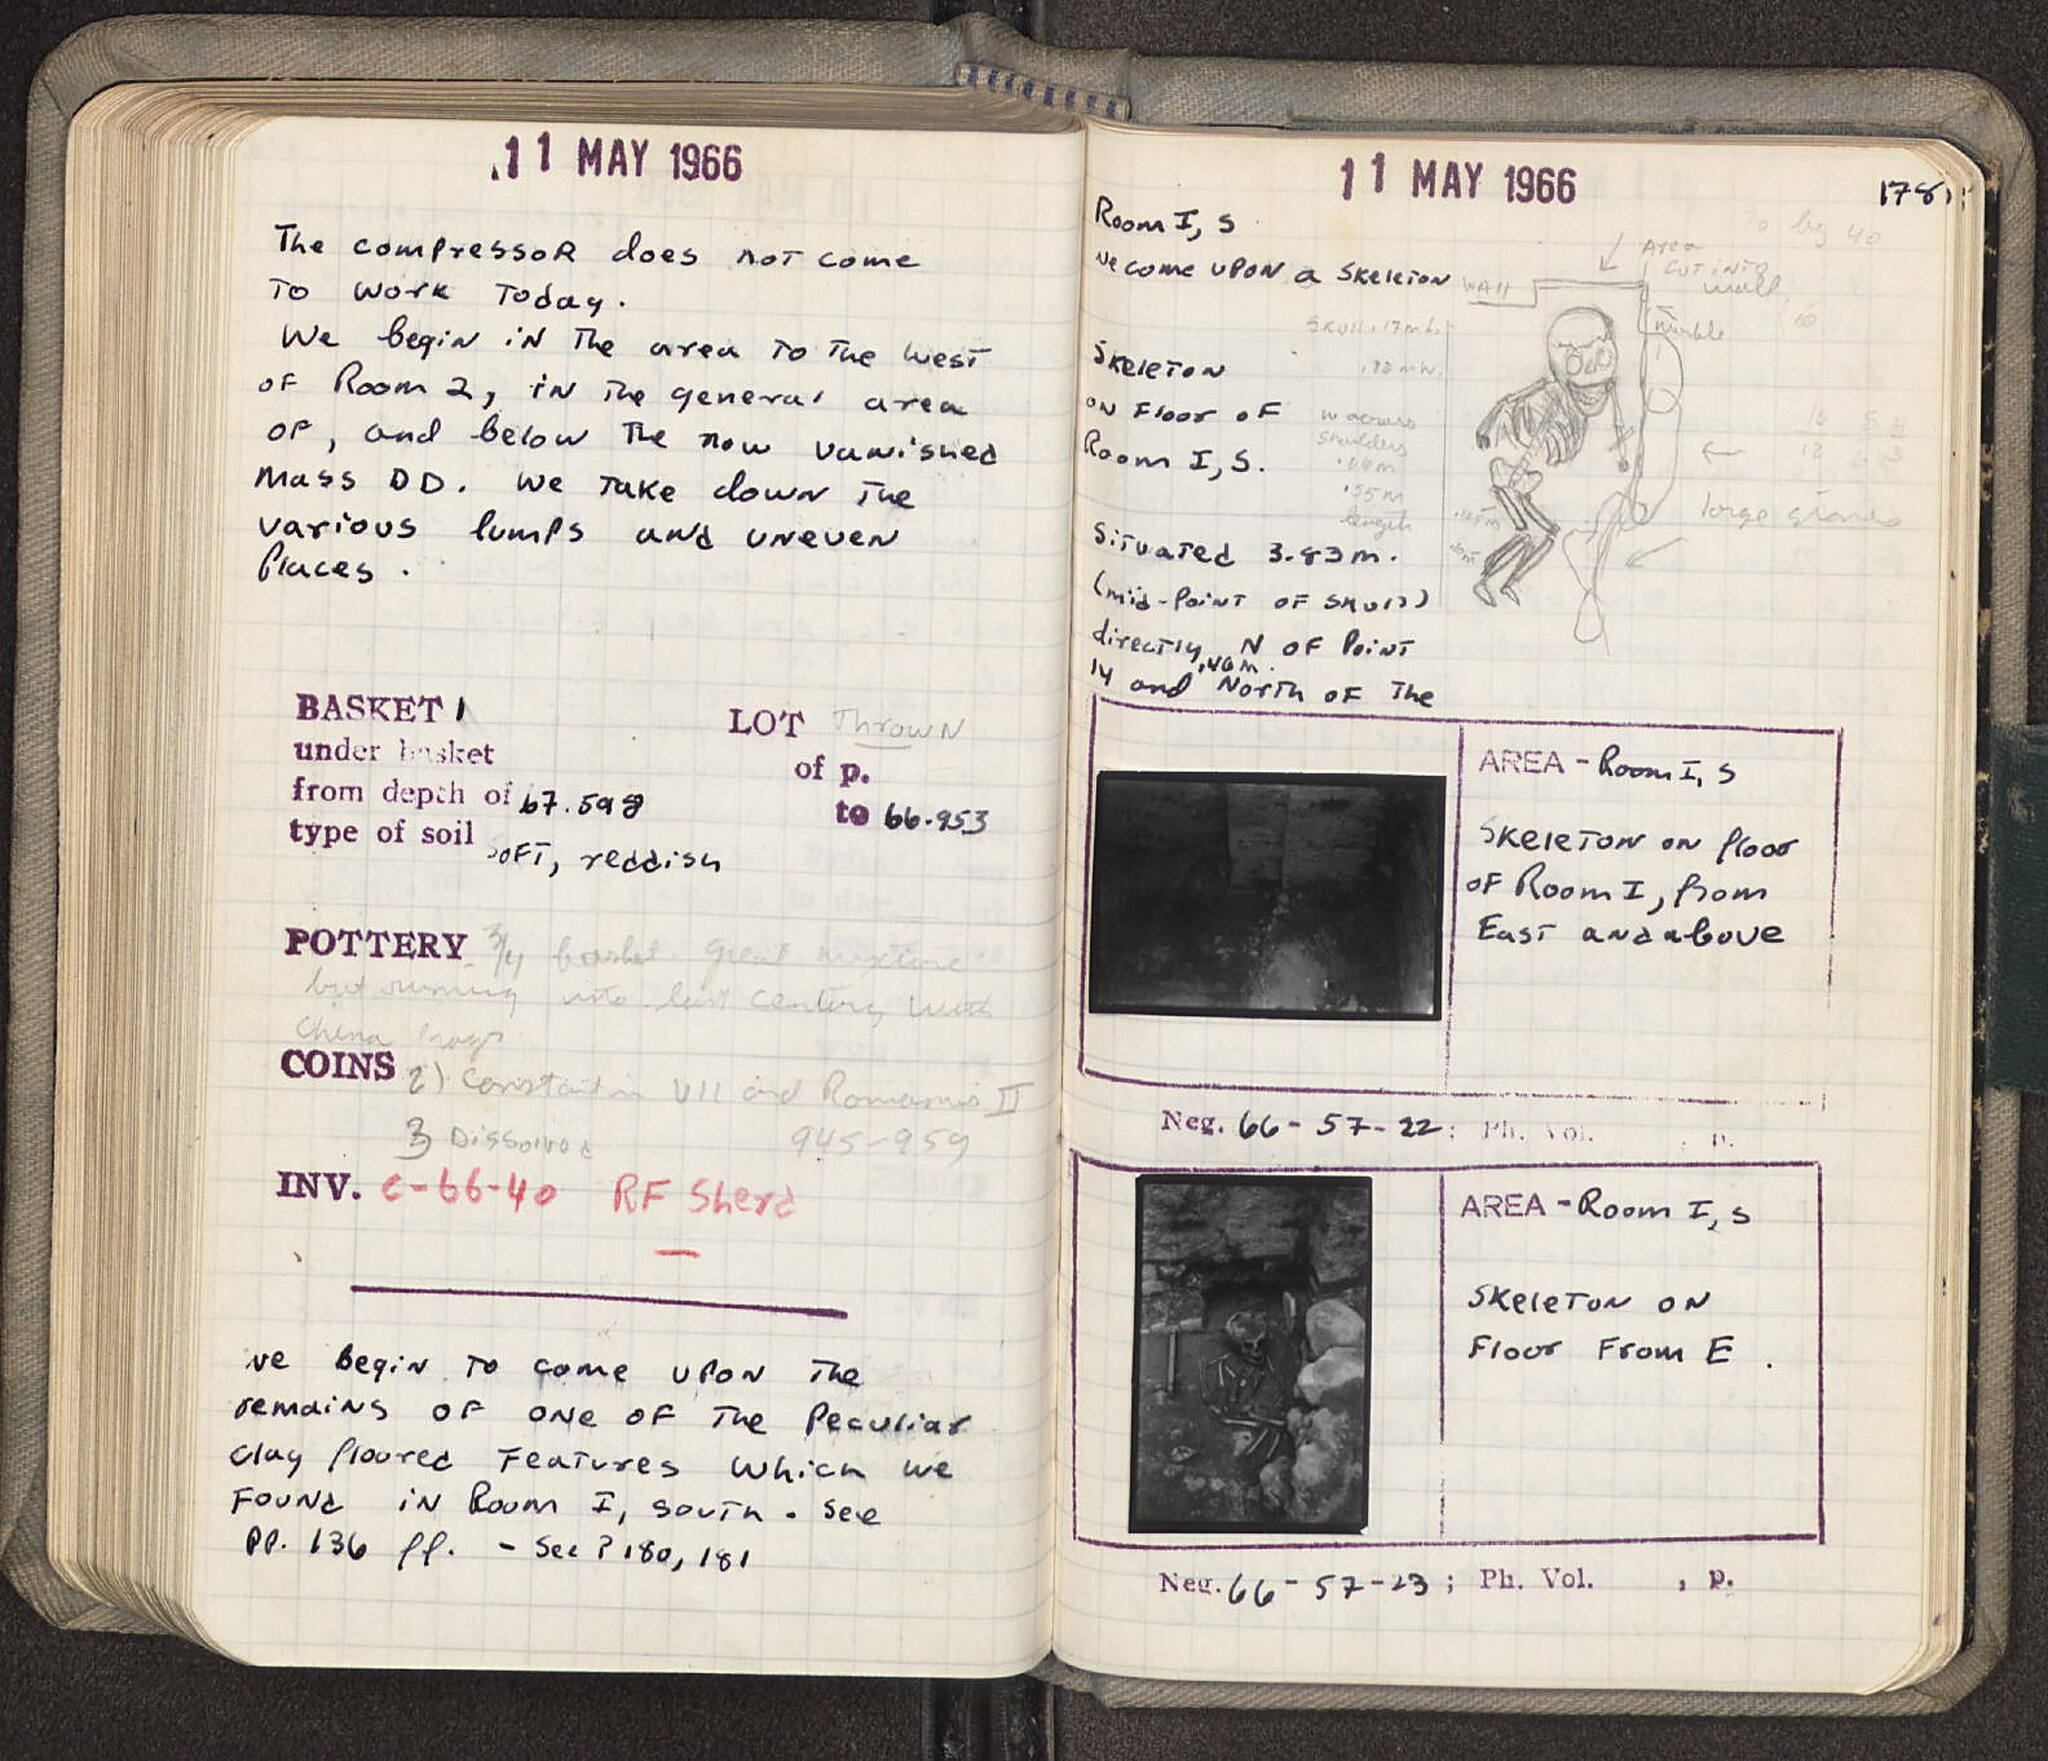 11 MAY 1966
The compressor does not come
to work today.
We begin in the area to the west
of Room 2, in the general area
of, and below the now vanished
Mass DD. We take down the
various lumps and uneven
places.
BASKET 1
under basket
from depth of 67.598
type of soil soft, reddish
LOT Thrown
of p.
to 66-953
POTTERY 3/4 basket. Great mixture
but running into last century with
china frags
COINS 2) Constantin VII and Romanus II
945-959
3 Dissolved
INV. C-66-40 RF Sherd
we begin to come upon the
remains of one of the peculiar
clay floored features which we
found in Room I, South. See
pp. 136 ff. - See P 180, 181
11 MAY 1966
178
Room I, S
we come upon a skeleton
Skeleton
on floor of
Room I, S.
Situated 3.83m.
(mid-point of skull)
directly N of point
14 and .40m. North of the
Wall
Area
cut into
wall
marble
Skull .17m L.
w across
shoulders
.55m
length
large stones
AREA - Room I, S
Skeleton on floor
of Room I, from
East and above
Neg. 66-57-22; Ph. Vol. , p.
AREA - Room I, S
Skeleton on
Floor From E.
Neg. 66-57-23; Ph. Vol. , p.